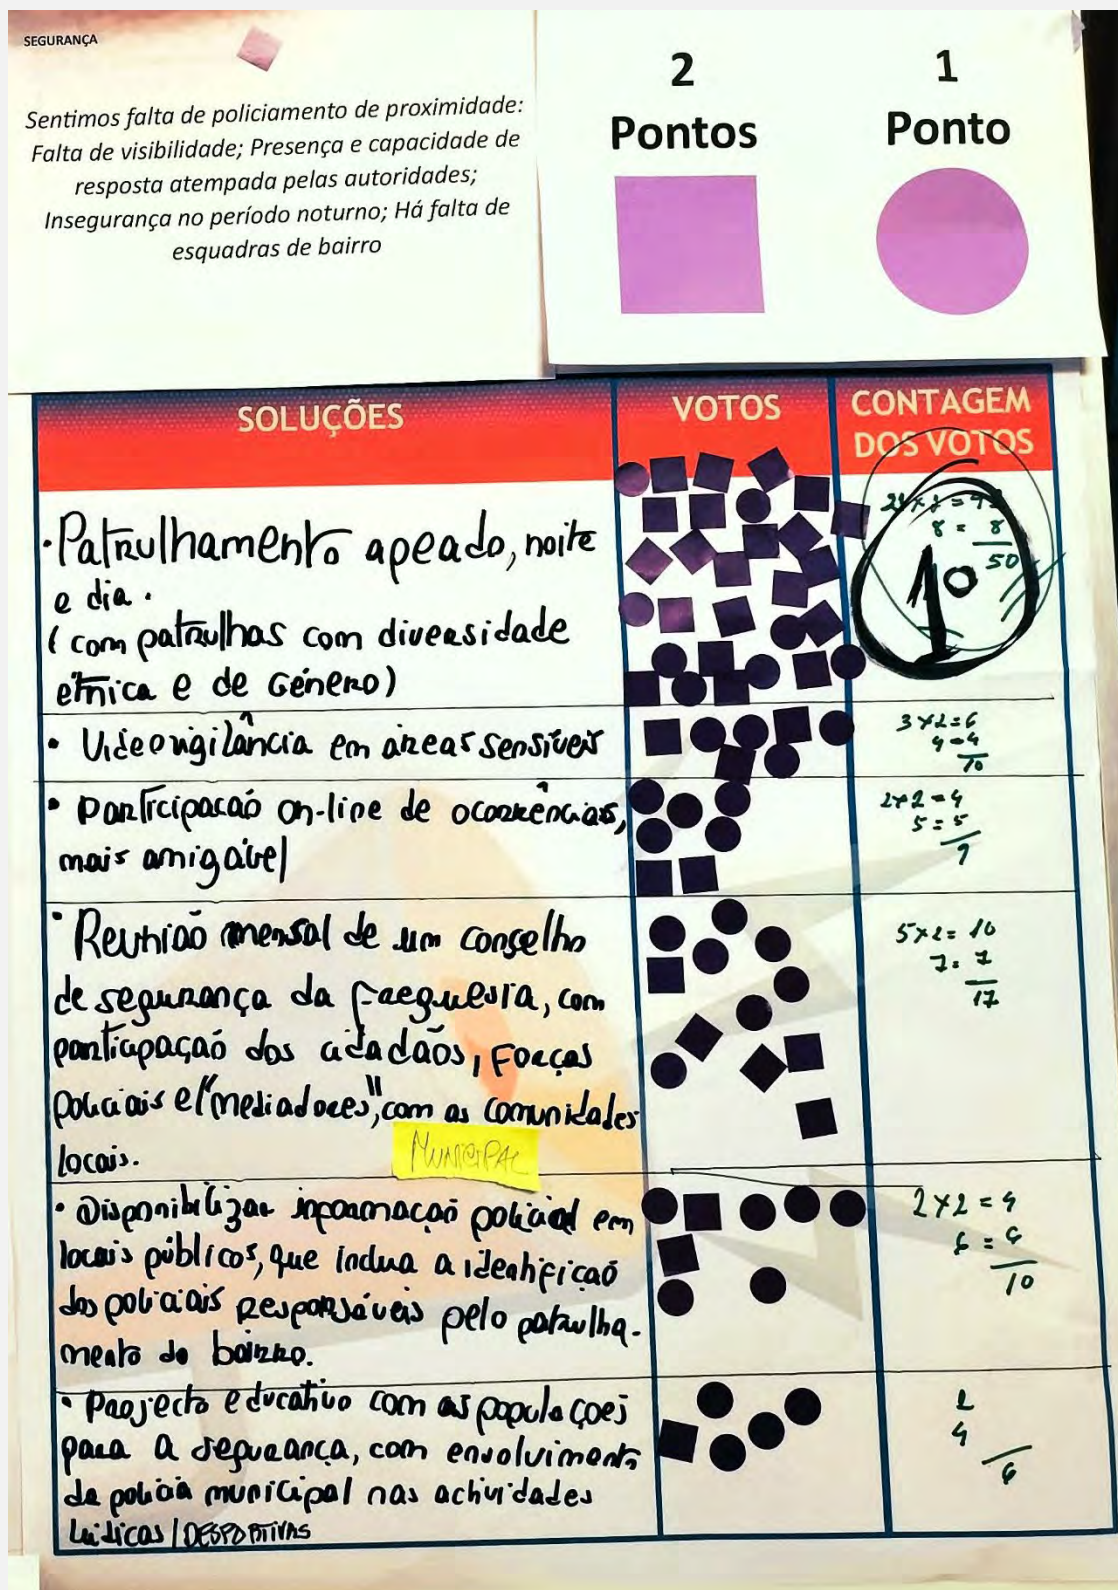 SEGURANÇA
Sentimos falta de policiamento de proximidade:
Falta de visibilidade; Presença e capacidade de
resposta atempada pelas autoridades;
Insegurança no período noturno; Há falta de
esquadras de bairro
2
Pontos
1
Ponto
SOLUÇÕES
VOTOS
CONTAGEM
DOS VOTOS
• Patrulhamento apeado, noite
e dia.
(com patrulhas com diversidade
étnica e de Género)
8 = 8
50
1º
• Videovigilância em áreas sensíveis
3x2=6
4=4
10
• Participação on-line de ocorrências,
mais amigável
2x2=4
5=5
9
• Reunião mensal de um conselho
de segurança da freguesia, com
participação dos cidadãos, Forças
policiais e/"mediadores", com as comunidades
locais.
MUNICIPAL
5x2= 10
7= 7
17
• Disponibilizar informação policial em
locais públicos, que inclua a identificação
dos policiais Responsáveis pelo patrulha-
mento do bairro.
2x2=4
6=6
10
• Projecto educativo com as populações
para a segurança, com envolvimento
da polícia municipal nas actividades
Lúdicas/DESPORTIVAS
2
4
6